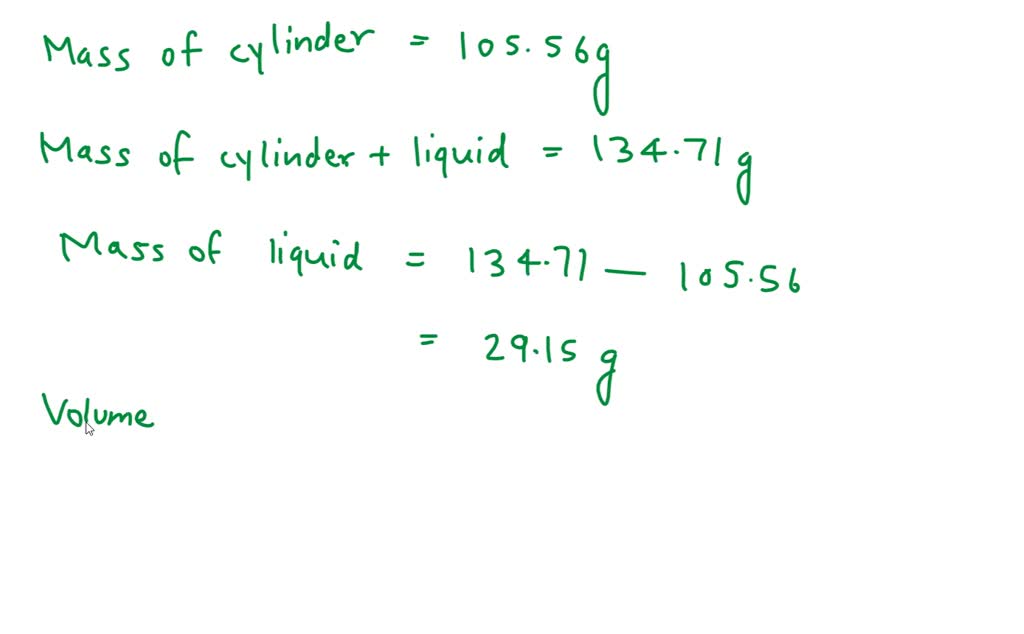 Mass of cylinder = 105.56g
Mass of cylinder + liquid = 134.71 g
Mass of liquid = 134.71 — 105.56
= 29.15 g
Volume